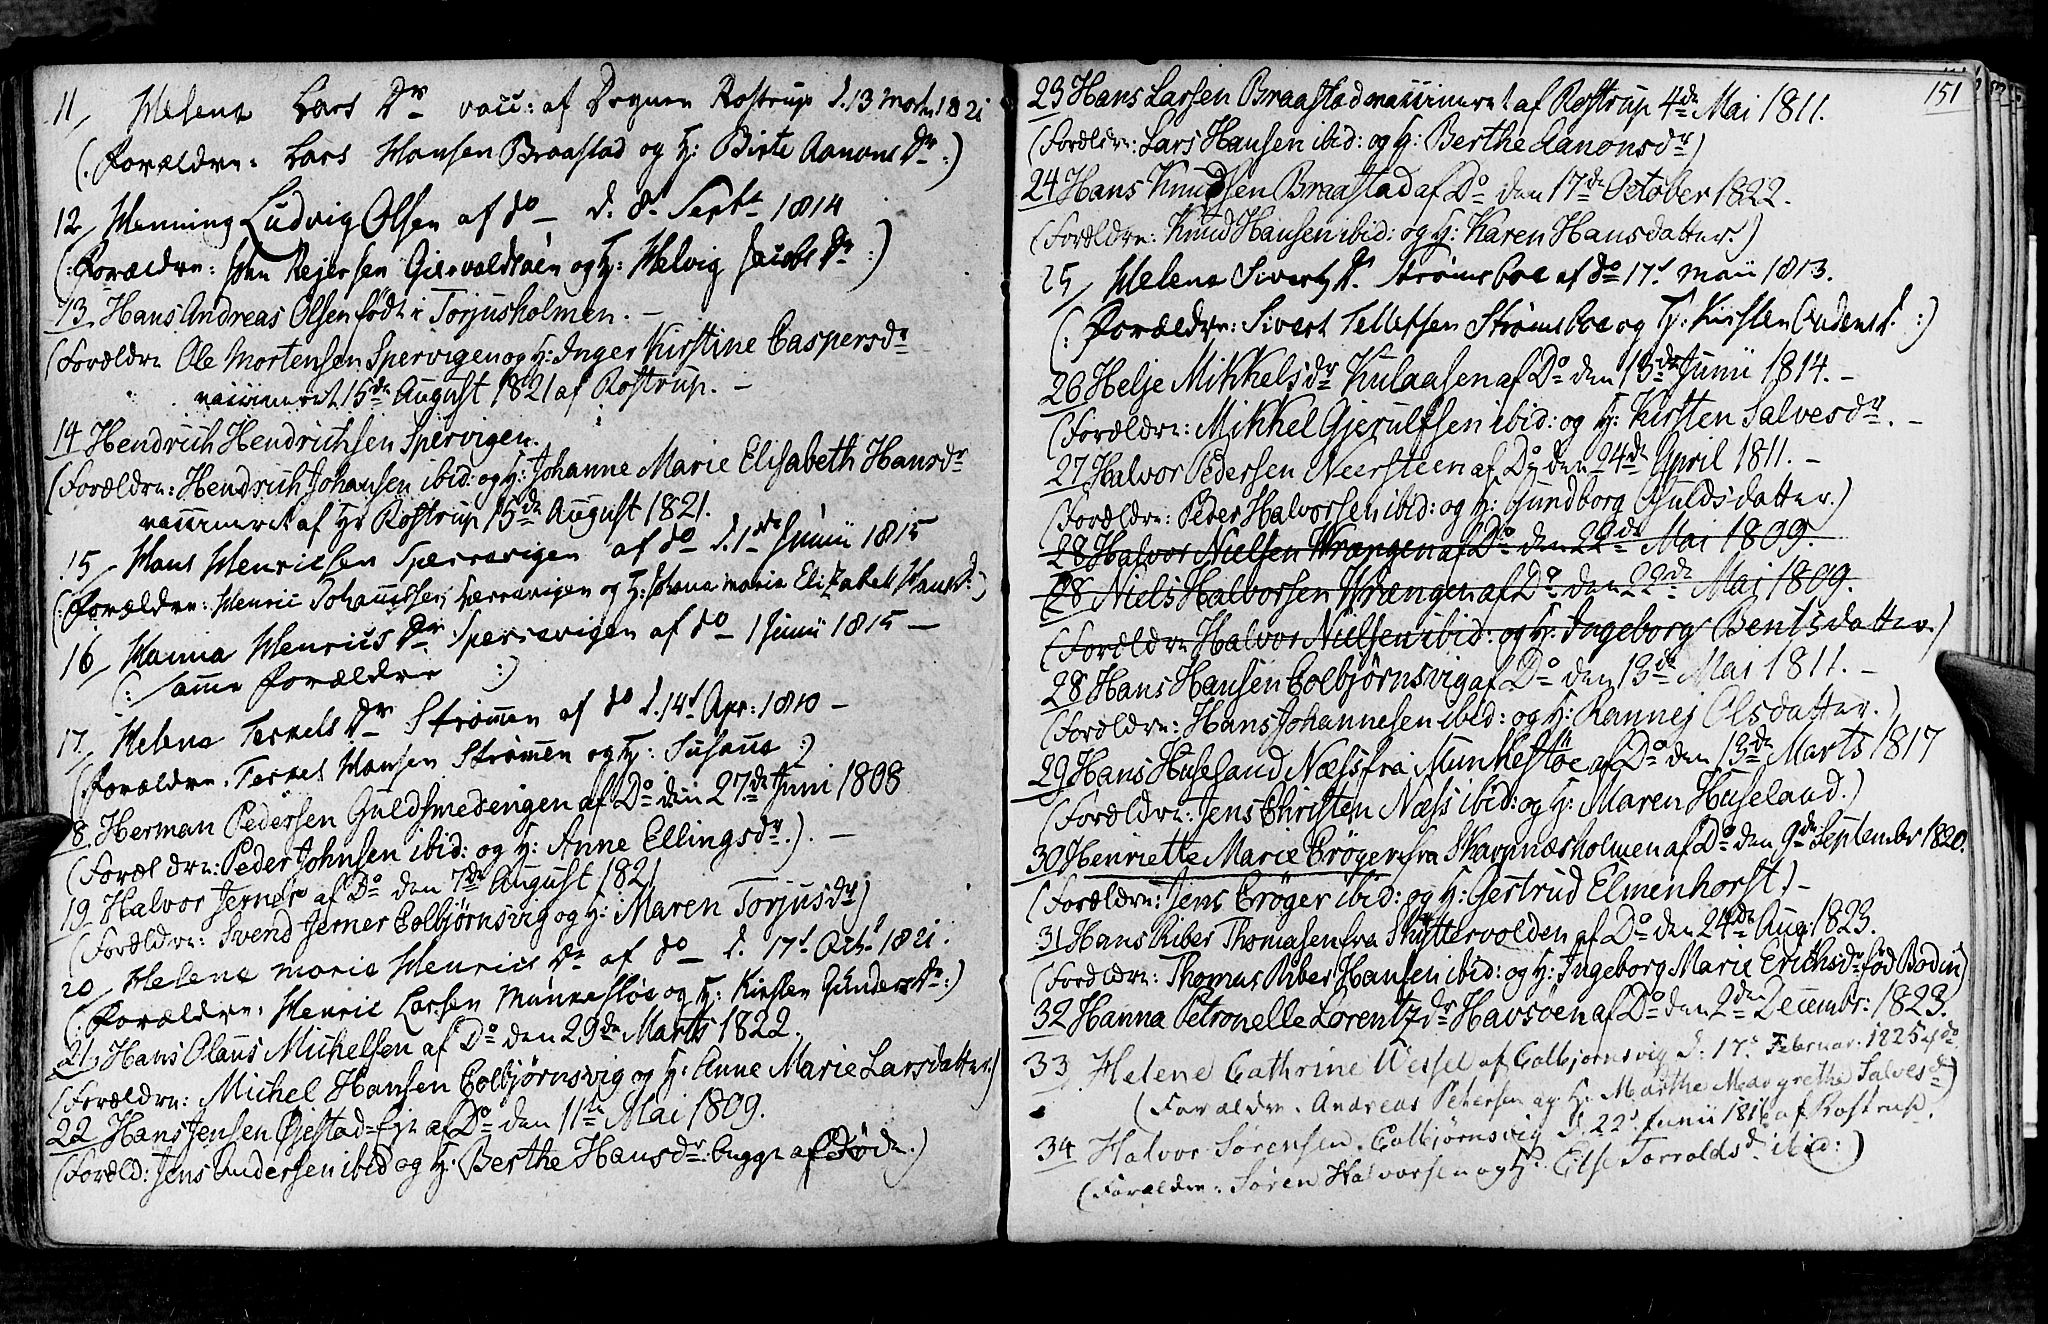 11, Helena Lars Dr vacc: af Degnen Rostrup d. 13 1821
(: Forældre: Lars Hansen Braastad og H: Birte Aanons Dr :)
12, Henning Ludvig Olsen af do d. 8. Septr 1814
(: Forældre: Rejersen og H: Helvig Jacobs Dr :)
13. Hans Andreas Olsen født i Torjusholmen. —
(Forældre Ole Mortensen Spervigen og H: Inger Kirstine Caspersdr
vaccineret 15de August 1821 af Rostrup. —
14 Hendrich Hendrichsen Spervigen.
(Forældre: Hendrich Johansen ibid: og H: Johanne Marie Elisabeth Hansdr
vaccineret af Hr Rostrup 15de August 1821.
15, Hans Henrichsen Sperrevigen af do d. 1de Junii 1815
(: Forældre: Henric og H: Johana Maria Elizabeth Hans D: :)
16, Hanna Henrics Dr Sperrevigen af do 1 Junii 1815 —
(: samme Forældre :)
17, Helena Terkels Dr Strømen af do d. 14d Apr: 1810 —
(: Forældre: Terkel Hansen Strømen og H: Susanna :)
18. Herman Pedersen Guldsmedengen af Do den 27de Juni 1808
(Forældre: Peder Johnsen ibid: og H: Anne Ellingsdr.) —
19 Halvor Jerner af Do den 7de August 1821
(Forældre: Svend Jerner Colbjørnsvig og H: Maren Torjusdr)
20, Helene Maria Henrics Dr af do d. 17d Octr 1821.
(: Forældre: Henric Larsen Munkestøe og H: Kirsten Gunders Dr :)
21, Hans Olaus Michelsen af Do den 29de Marts 1822.
(Forældre: Michel Hansen Colbjørnsvig og H: Anne Marie Larsdatter.)
22 Hans Jensen Øjestad af Do den 11te Mai 1809.
(Foræld: Jens Andersen ibid og H: Berthe Hansdr: begge af Døde.)
151
23 Hans Larsen Braastad vaccineret af Rostrup 4de Mai 1811.
(Forældre: Lars Hansen ibid: og H: Berthe Aanonsdr)
24 Hans Knudsen Braastad af Do den 17de October 1822.
(Forældre: Knud Hansen ibid: og H: Karen Hansdatter.)
25, Helena Siverts Dr. Strømsboe af do 17d Maii 1813.
(: Forældre: Sivert Tellefsen Strømsboe og H: Kirsten :)
26 Helje Mikkelsdr Kulaasen af Do den 13de Junii 1814. —
(Forældre: Mikkel Gjerulfsen ibid: og H: Kirsten Salvesdr. —
27 Halvor Pedersen Neersteen af Do den 24de April 1811. —
(Forældre: Peder Halvorsen ibid: og H: Gundborg Osuldsdatter.)
28 Halvor Nielsen Wrængen af Do den 22de Mai 1809.
28 Niels Halvorsen Wrængen af Do den 22de Mai 1809.
(Forældre Halvor Nielsen ibid: og H: Ingeborg Bentsdatter.)
28 Hans Hansen Colbjørnsvig af Do den 13de Mai 1811. —
(Forældre: Hans Johannesen ibid: og H: Rannej Olsdatter.)
29 Hans Huseland Næss fra Munkestøe af Do den 13de Marts 1817
(Forældre: Jens Christen Næss ibid: og H: Maren Huseland.)
30 Henriette Marie Crøger fra Skavnnæsholmen af Do den 9de September 1820.
(Forældre: Jens Crøger ibid: og H: Gertrud Elmenhorst.) —
31 Hans Riber Thomasen fra Skyttervolden af Do den 24de Aug: 1823.
(Forældre: Thomas Riber Hansen ibid: og H: Ingeborg Marie Erichsdr fød Bodin)
32 Hanna Petronelle Lorentzdr Havsøen af Do den 2den Decembr: 1823.
33 Helene Cathrine Wessel af Colbjørnsvig d: 17d Februar. 1825 af do
(Forældre. Andreas Petersen og H: Marthe Margrethe Salvesdr)
34 Halvor Sørensen. Colbjørnsvig d. 22d Junii 1816 af Rostrup.
(Forældre: Søren Halvorsen og H: Else Torvoldsd. ibid:)